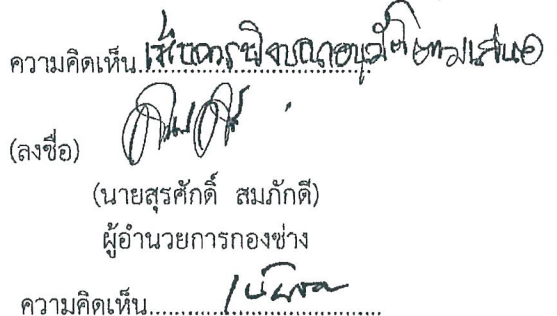 ความคิดเห็น เห็นควรพิจารณาอนุมัติตามเสนอ
(ลงชื่อ)
(นายสุรศักดิ์ สมภักดี)
ผู้อำนวยการกองช่าง
ความคิดเห็น